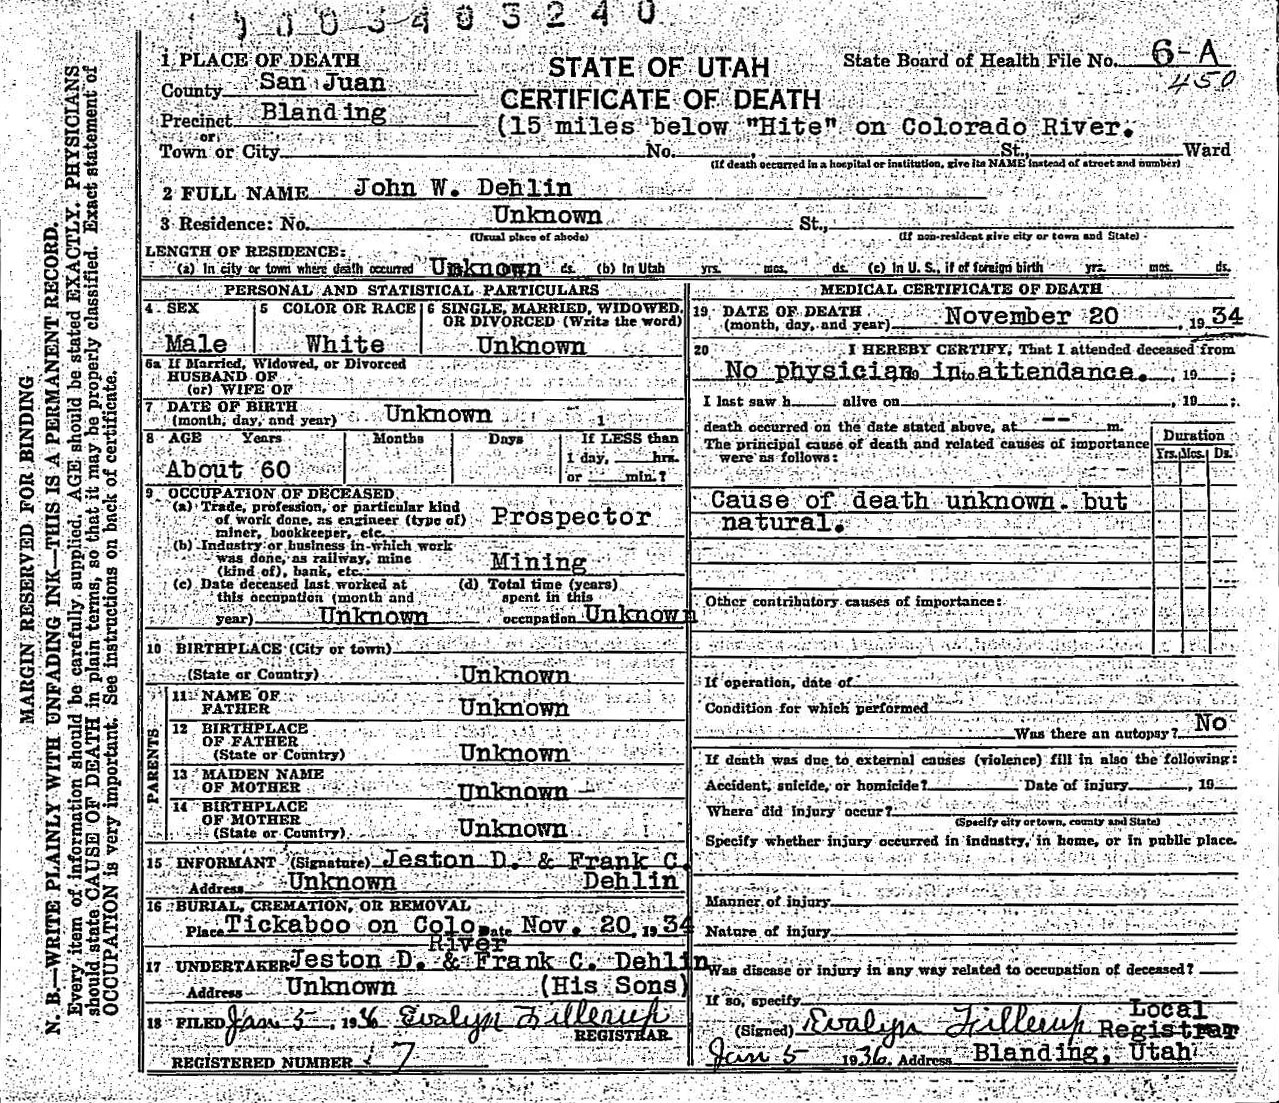 1003403240
1 PLACE OF DEATH
County San Juan
Precinct Blanding
or
Town or City No. , St., Ward
STATE OF UTAH
CERTIFICATE OF DEATH
(15 miles below "Hite" on Colorado River.
State Board of Health File No. 6-A
450
(If death occurred in a hospital or institution, give its NAME instead of street and number)
2 FULL NAME John W. Dehlin
3 Residence: No. Unknown St.,
(Usual place of abode) (If non-resident give city or town and State)
LENGTH OF RESIDENCE:
(a) In city or town where death occurred Unknown ds. (b) In Utah yrs. mos. ds. (c) in U. S., if of foreign birth yrs. mos. ds.
PERSONAL AND STATISTICAL PARTICULARS
4 SEX
Male
5 COLOR OR RACE
White
6 SINGLE, MARRIED, WIDOWED,
OR DIVORCED (Write the word)
Unknown
6a If Married, Widowed, or Divorced
HUSBAND OF
(or) WIFE OF
7 DATE OF BIRTH
(month, day, and year) Unknown 1
8 AGE Years Months Days If LESS than
1 day, hrs.
or min.?
About 60
9 OCCUPATION OF DECEASED
(a) Trade, profession, or particular kind
of work done, as engineer (type of)
miner, bookkeeper, etc. Prospector
(b) Industry or business in which work
was done, as railway, mine
(kind of), bank, etc. Mining
(c) Date deceased last worked at
this occupation (month and
year) Unknown
(d) Total time (years)
spent in this
occupation Unknown
10 BIRTHPLACE (City or town)
(State or Country) Unknown
PARENTS
11 NAME OF
FATHER Unknown
12 BIRTHPLACE
OF FATHER
(State or Country) Unknown
13 MAIDEN NAME
OF MOTHER Unknown
14 BIRTHPLACE
OF MOTHER
(State or Country) Unknown
15 INFORMANT (Signature) Jeston D. & Frank C.
Address Unknown Dehlin
16 BURIAL, CREMATION, OR REMOVAL
Place Tickaboo on Colo. Date Nov. 20, 1934
River
17 UNDERTAKER Jeston D. & Frank C. Dehlin
Address Unknown (His Sons)
18 FILED Jan 5, 1936 Evalyn Fillerup
REGISTRAR.
REGISTERED NUMBER 7
MEDICAL CERTIFICATE OF DEATH
19 DATE OF DEATH
(month, day, and year) November 20, 1934
20 I HEREBY CERTIFY, That I attended deceased from
No physician in attendance. , 19 ;
I last saw h alive on , 19 ;
death occurred on the date stated above, at -- m.
The principal cause of death and related causes of importance
were as follows:
Duration
Yrs. Mos. Ds.
Cause of death unknown but
natural.
Other contributory causes of importance:
If operation, date of
Condition for which performed
Was there an autopsy? No
If death was due to external causes (violence) fill in also the following:
Accident, suicide, or homicide? Date of injury , 19
Where did injury occur?
(Specify city or town, county and State)
Specify whether injury occurred in industry, in home, or in public place.
Manner of injury
Nature of injury
Was disease or injury in any way related to occupation of deceased?
If so, specify
(Signed) Evalyn Fillerup Local
Registrar
Jan 5 1936 Address Blanding, Utah
MARGIN RESERVED FOR BINDING
N. B.—WRITE PLAINLY WITH UNFADING INK—THIS IS A PERMANENT RECORD.
Every item of information should be carefully supplied. AGE should be stated EXACTLY. PHYSICIANS
should state CAUSE OF DEATH in plain terms, so that it may be properly classified. Exact statement of
OCCUPATION is very important. See instructions on back of certificate.